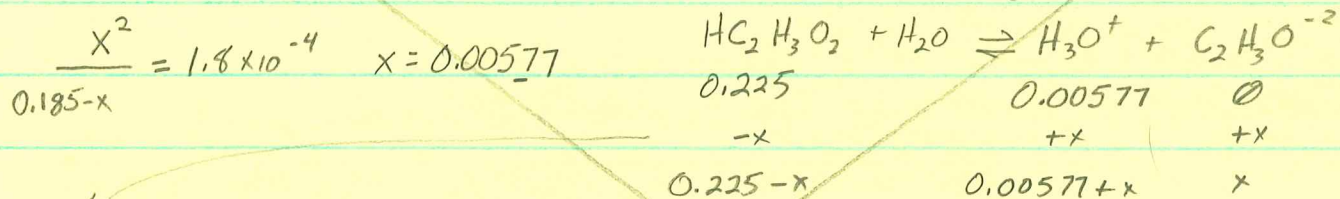 x² / 0.185-x = 1.8 x10⁻⁴   x = 0.00577
HC₂H₃O₂ + H₂O ⇌ H₃O⁺ + C₂H₃O⁻²
0.225   0.00577   Ø
-x   +x   +x
0.225-x   0.00577+x   x